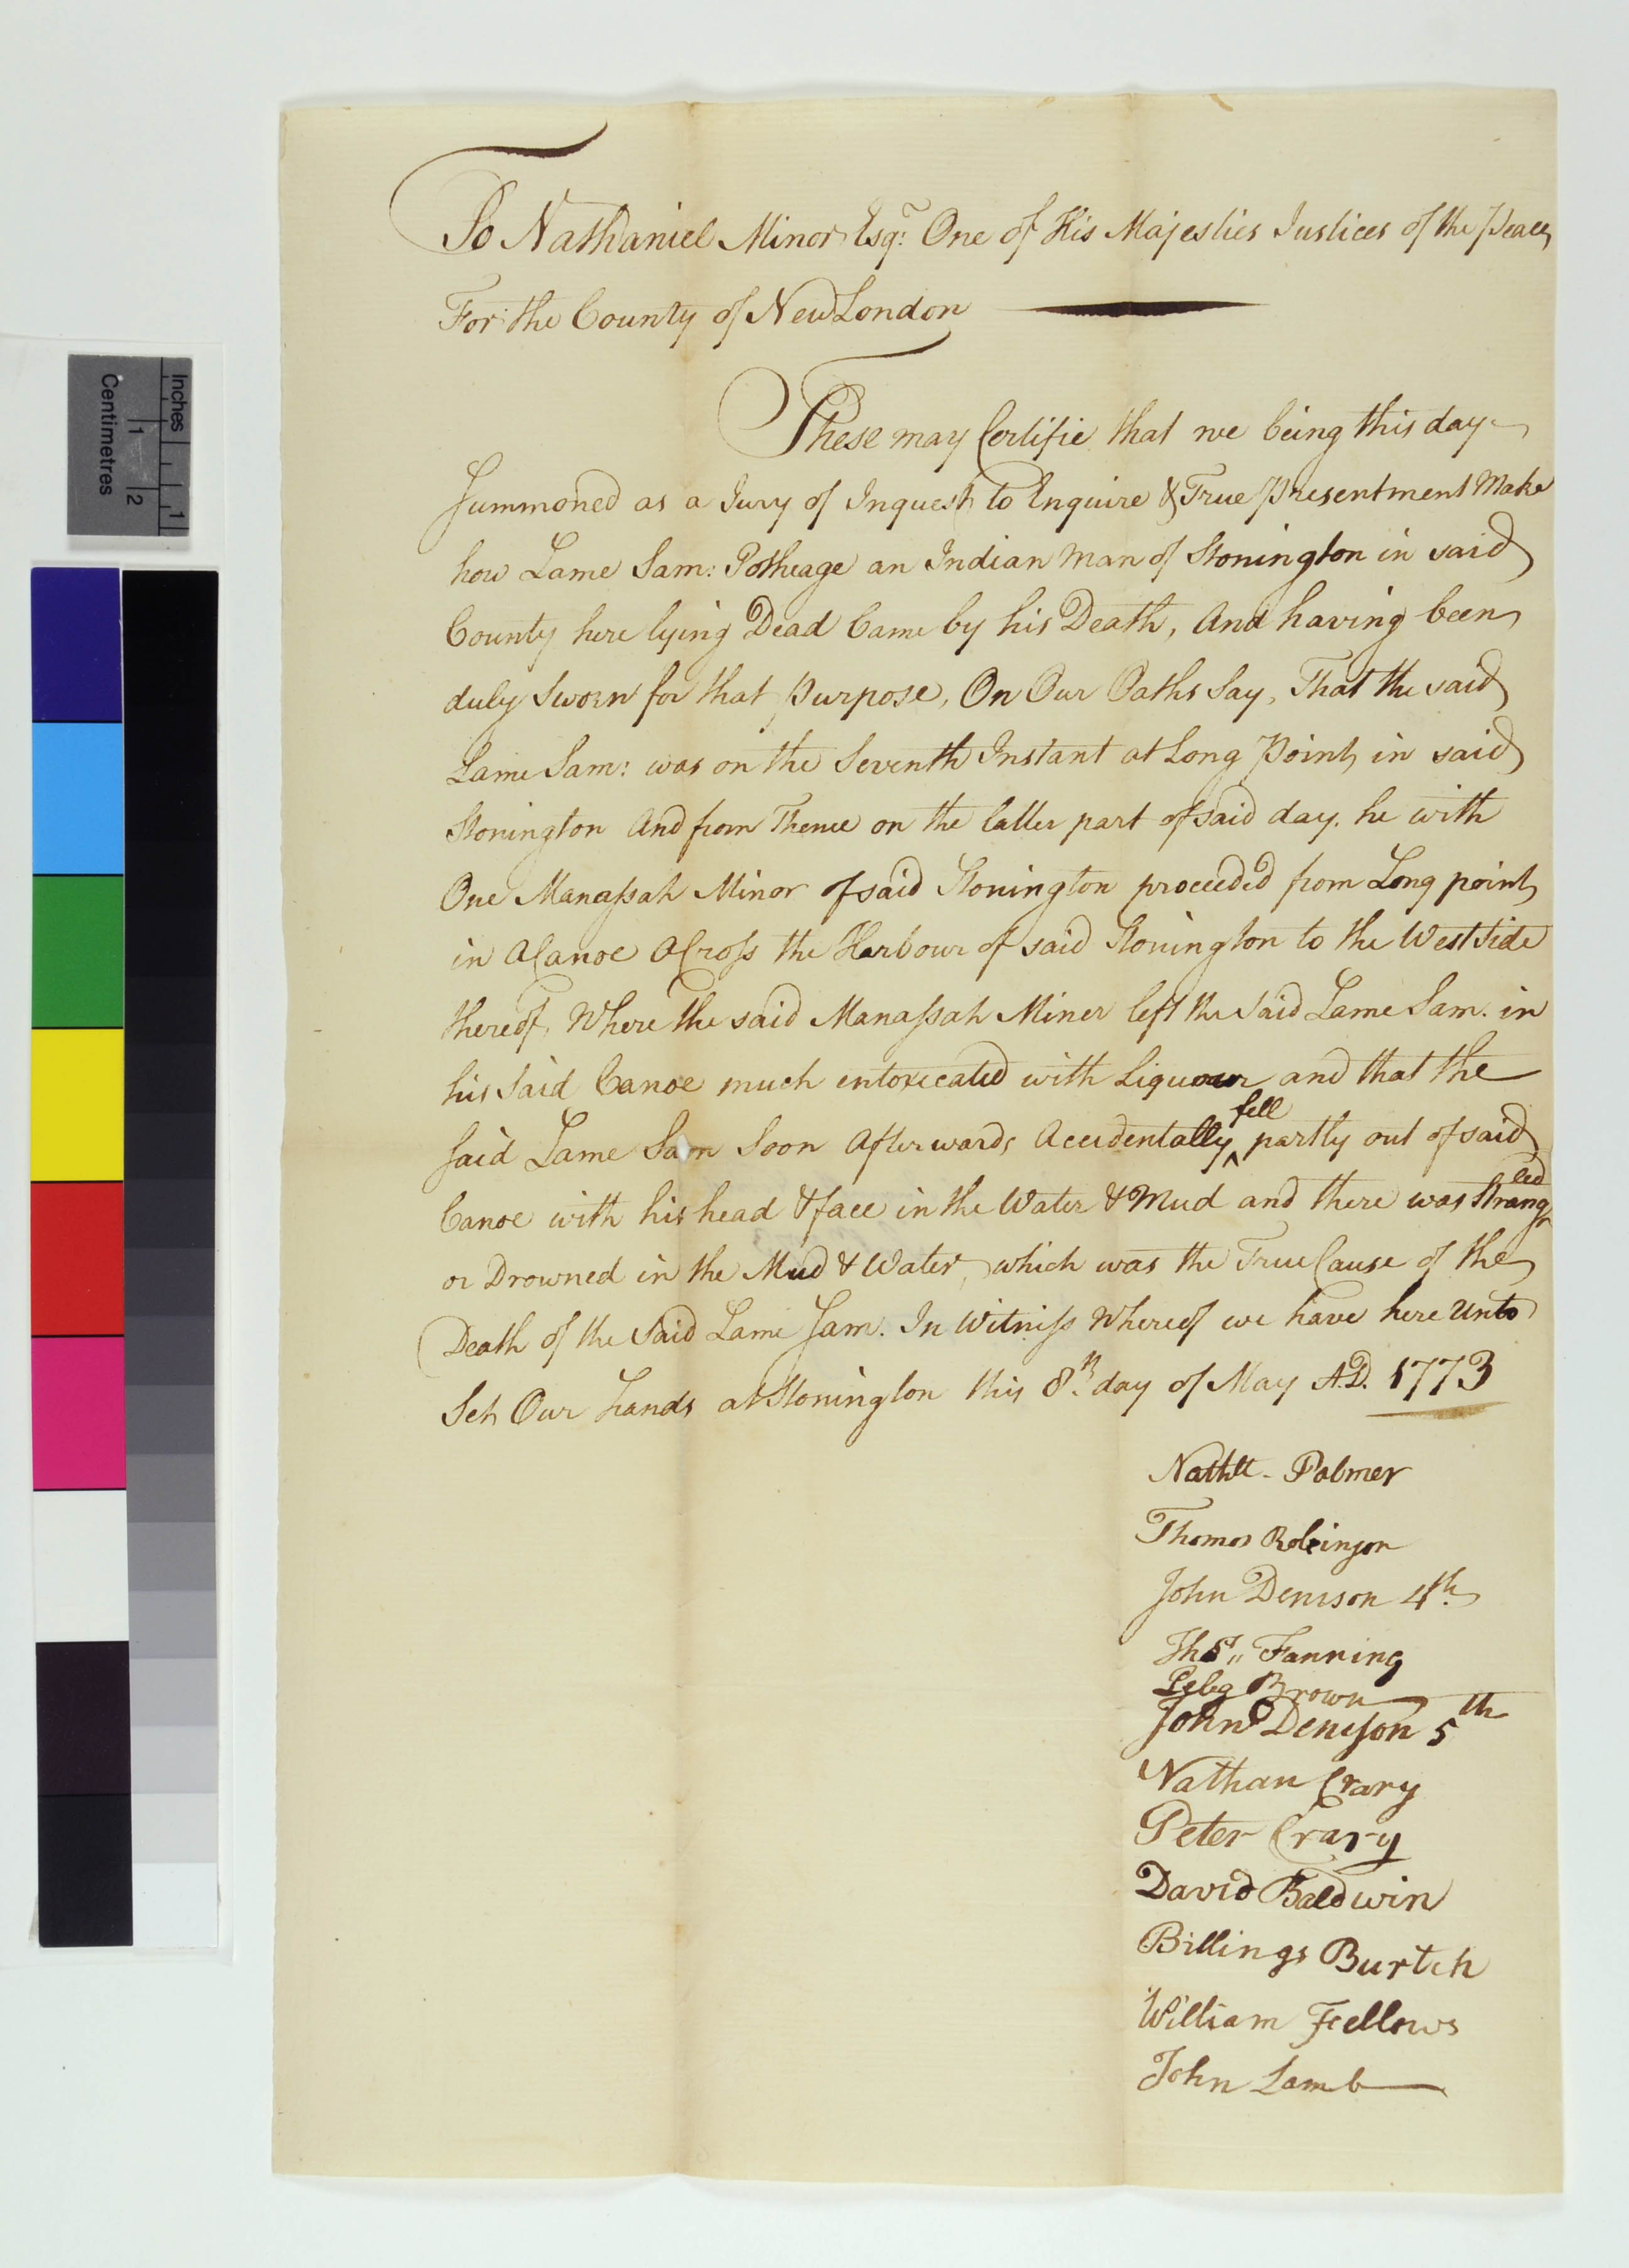 To Nathaniel Minor Esqr. One of His Majesties Justices of the Peace
For the County of New London
These may Certifie that we being this day
Summoned as a Jury of Inquest to Enquire & True Presentment Make
how Lame Sam: Potheage an Indian man of Stonington in said
County here lying Dead Came by his Death, And having been
duly Sworn for that Purpose, On Our Oaths Say, That the said
Lame Sam: was on the Seventh Instant at Long Point in said
Stonington And from Thence on the latter part of said day. he with
One Manassah Minor of said Stonington proceeded from Long point
in A Canoe A Cross the Harbour of said Stonington to the West Side
thereof, Where the said Manassah Miner left the said Lame Sam. in
his said Canoe much entoxecated with Liquour and that the
said Lame Sam Soon Afterwards Accidentally fell partly out of said
Canoe with his head & face in the Water & Mud and there was Strangled
or Drowned in the Mud & Water, which was the True Cause of the
Death of the said Lame Sam. In Witness Whereof we have here Unto
Set Our hands at Stonington this 8th day of May A.D. 1773
Nathll - Palmer
Thomas Robinson
John Denison 4th.
Thos,, Fanning
Peleg Brown
John Denison 5th
Nathan Crary
Peter Crary
David Baldwin
Billings Burtch
William Fellows
John Lamb
Inches
1
Centimetres
1
2